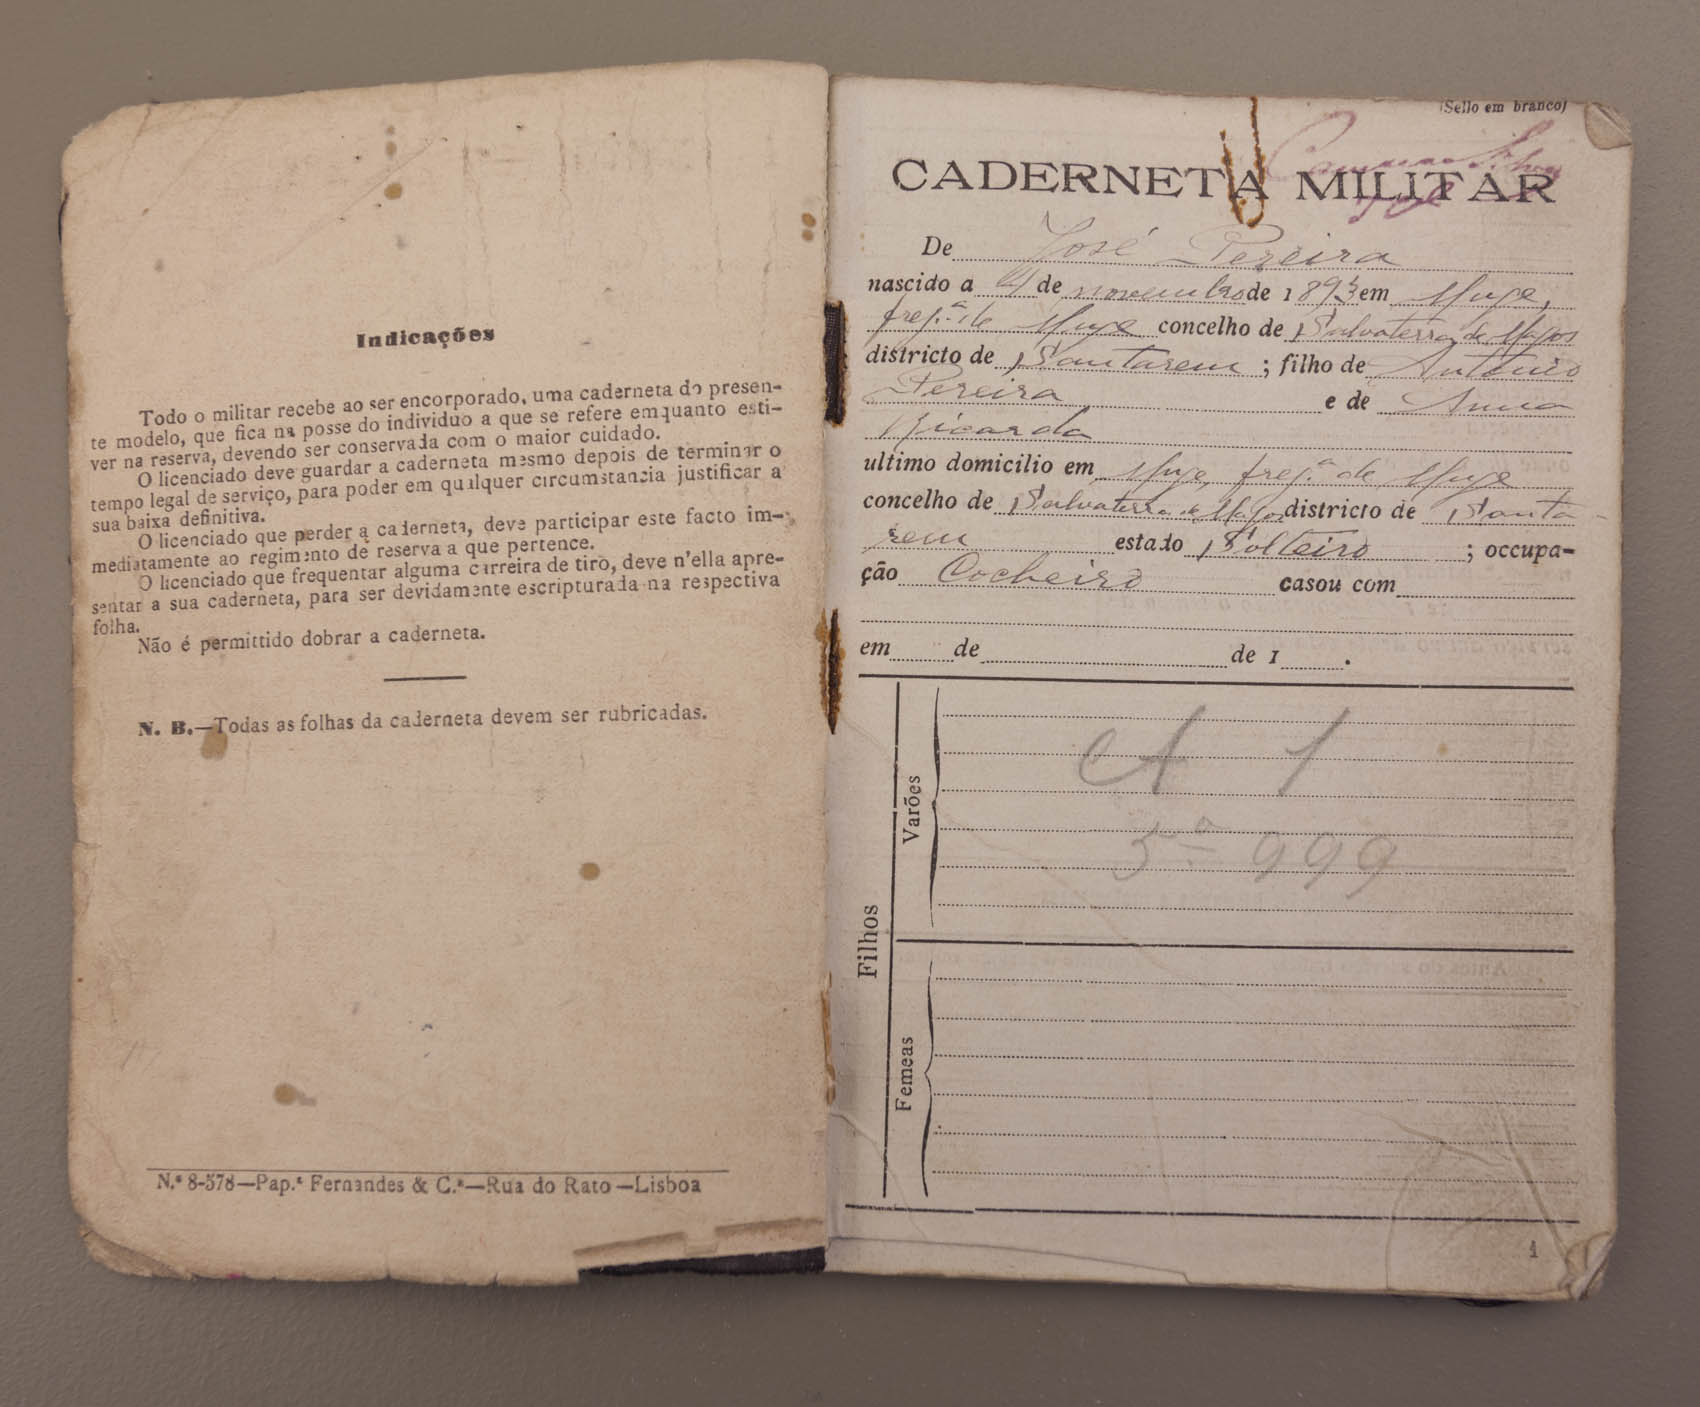 Indicações
Todo o militar recebe ao ser encorporado, uma caderneta do presen-
te modelo, que fica na posse do individuo a que se refere emquanto esti-
ver na reserva, devendo ser conservada com o maior cuidado.
O licenciado deve guardar a caderneta mesmo depois de terminar o
tempo legal de serviço, para poder em qualquer circumstancia justificar a
sua baixa definitiva.
O licenciado que perder a caderneta, deve participar este facto im-
mediatamente ao regimento de reserva a que pertence.
O licenciado que frequentar alguma carreira de tiro, deve n'ella apre-
sentar a sua caderneta, para ser devidamente escripturada na respectiva
folha.
Não é permittido dobrar a caderneta.
N. B.—Todas as folhas da caderneta devem ser rubricadas.
N.º 8-578—Pap.ª Fernandes & C.ª—Rua do Rato—Lisboa
(Sello em branco)
CADERNETA MILITAR
De José Pereira
nascido a de novembro de 1893 em Muge,
freg.ª de Muge concelho de Salvaterra de Magos
districto de Santarem ; filho de Antonio
Pereira e de Anna
Ricarda
ultimo domicilio em Muge, freg.ª de Muge
concelho de Salvaterra de Magos districto de Santa-
rem estado Solteiro ; occupa-
ção Cocheiro casou com
em de de 1 .
Filhos
Varões
A 1
5º 999
Femeas
1